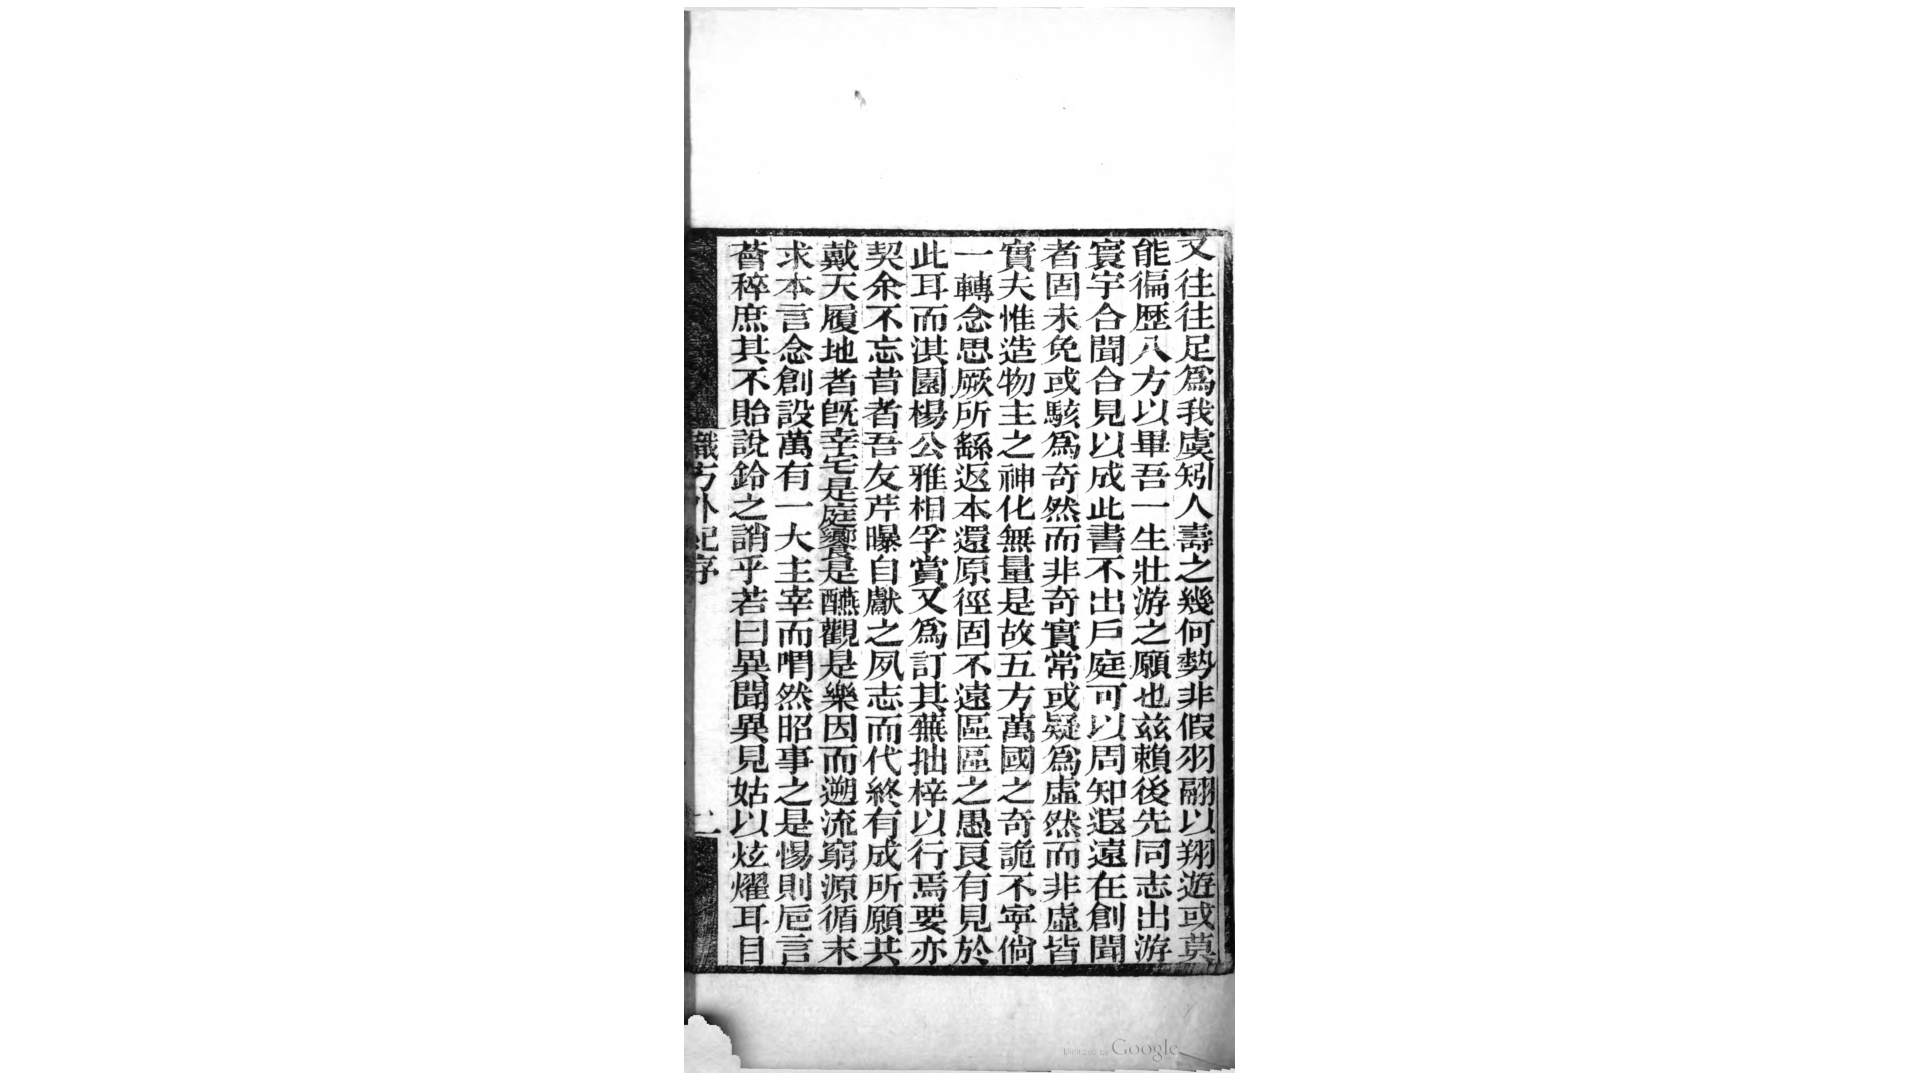 又往往足爲我虞矧人壽之幾何勢非假羽翮以翔遊或莫
能徧歷八方以畢吾一生壯游之願也玆賴後先同志出游
寰宇合聞合見以成此書不出戶庭可以周知遐遠在創聞
者固未免或駭爲奇然而非奇實常或疑爲虛然而非虛皆
實夫惟造物主之神化無量是故五方萬國之奇詭不寧倘
一轉念思厥所繇返本還原徑固不遠區區之愚良有見於
此耳而淇園楊公雅相孚賞又爲訂其蕪拙梓以行焉要亦
契余不忘昔者吾友芹曝自獻之夙志而代終有成所願共
戴天履地者旣幸宅是庭饗是醼觀是樂因而遡流窮源循末
求本言念創設萬有一大主宰而喟然昭事之是惕則巵言
薈稡庶其不貽說鈴之誚乎若曰異聞異見姑以炫燿耳目
職方外紀序
二
Digitized by Google